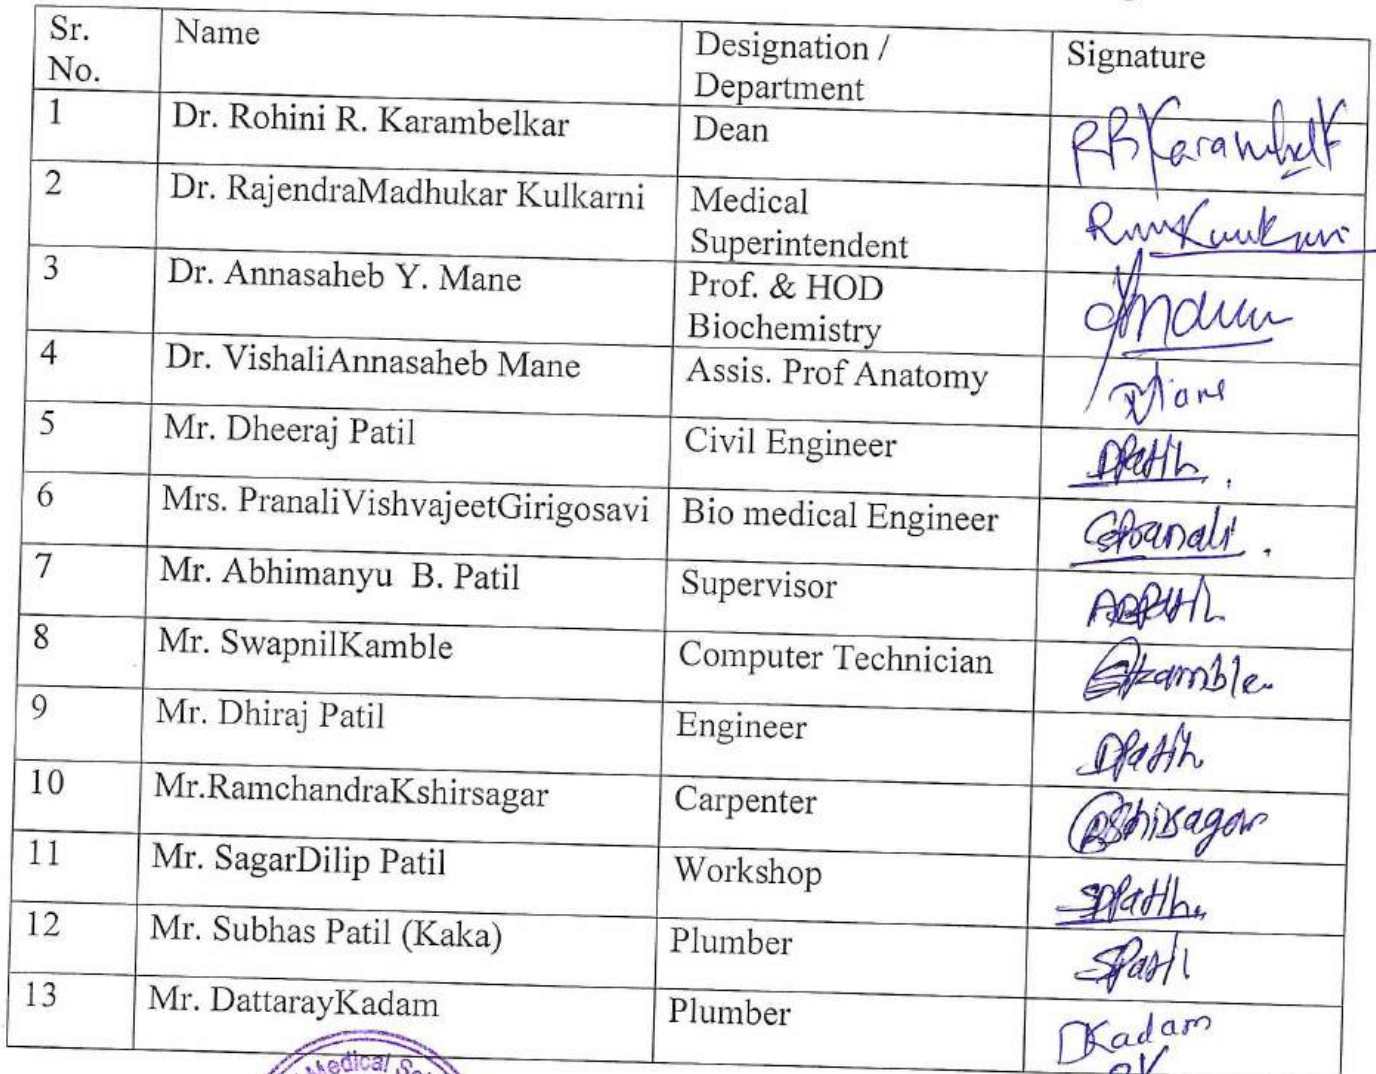 Sr. No. Name Designation / Department Signature
1 Dr. Rohini R. Karambelkar Dean RRKarambelk
2 Dr. RajendraMadhukar Kulkarni Medical Superintendent
3 Dr. Annasaheb Y. Mane Prof. & HOD Biochemistry
4 Dr. VishaliAnnasaheb Mane Assis. Prof Anatomy
5 Mr. Dheeraj Patil Civil Engineer DPatil
6 Mrs. PranaliVishvajeetGirigosavi Bio medical Engineer
7 Mr. Abhimanyu B. Patil Supervisor
8 Mr. SwapnilKamble Computer Technician
9 Mr. Dhiraj Patil Engineer DPatil
10 Mr.RamchandraKshirsagar Carpenter
11 Mr. SagarDilip Patil Workshop
12 Mr. Subhas Patil (Kaka) Plumber SPatil
13 Mr. DattarayKadam Plumber DKadam
Medical